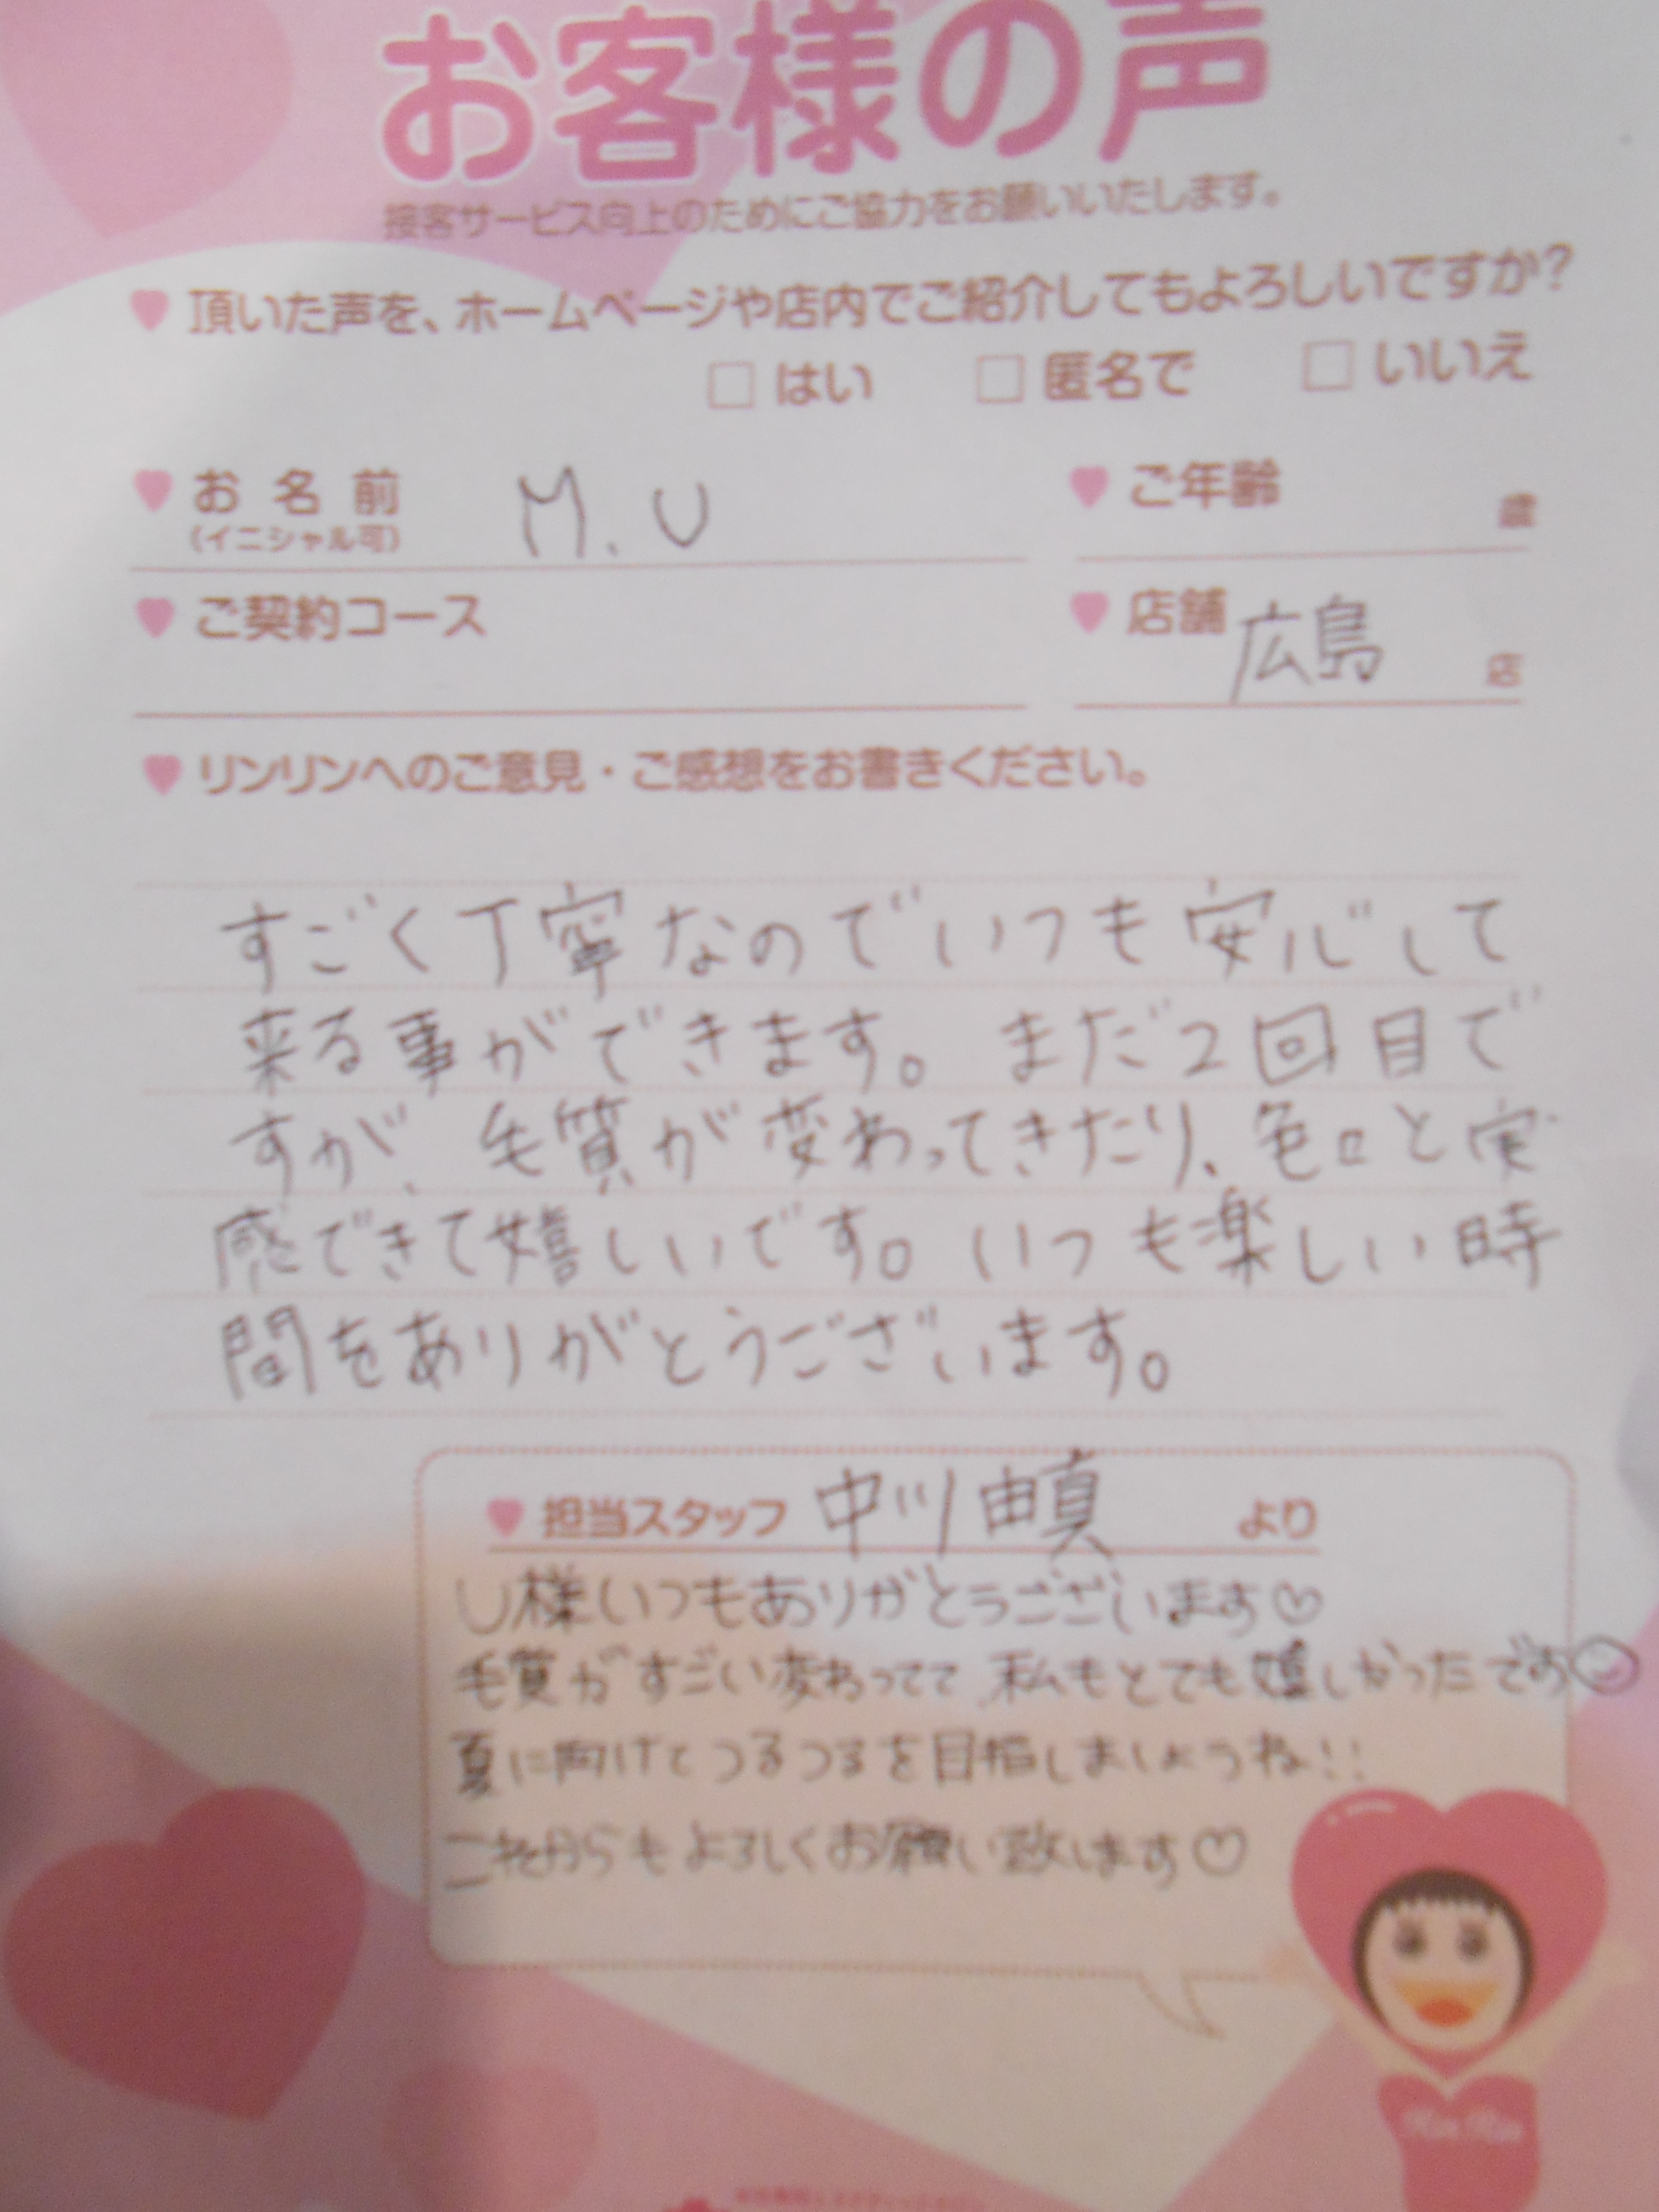 お客様の声
接客サービス向上のためにご協力をお願いいたします。
頂いた声を、ホームページや店内でご紹介してもよろしいですか?
□ はい □ 匿名で □ いいえ
お名前 M.U ご年齢 歳
(イニシャル可)
ご契約コース 店舗 広島 店
リンリンへのご意見・ご感想をお書きください。
すごく丁寧なのでいつも安心して
来る事ができます。まだ2回目で
すが、毛質が変わってきたり、色々と実
感できて嬉しいです。いつも楽しい時
間をありがとうございます。
担当スタッフ 中川由真 より
U様いつもありがとうございます♡
毛質がすごい変わってて、私もとても嬉しかったです
夏に向けてつるつるを目指しましょうね!!
これからもよろしくお願い致します♡
Rin Rin